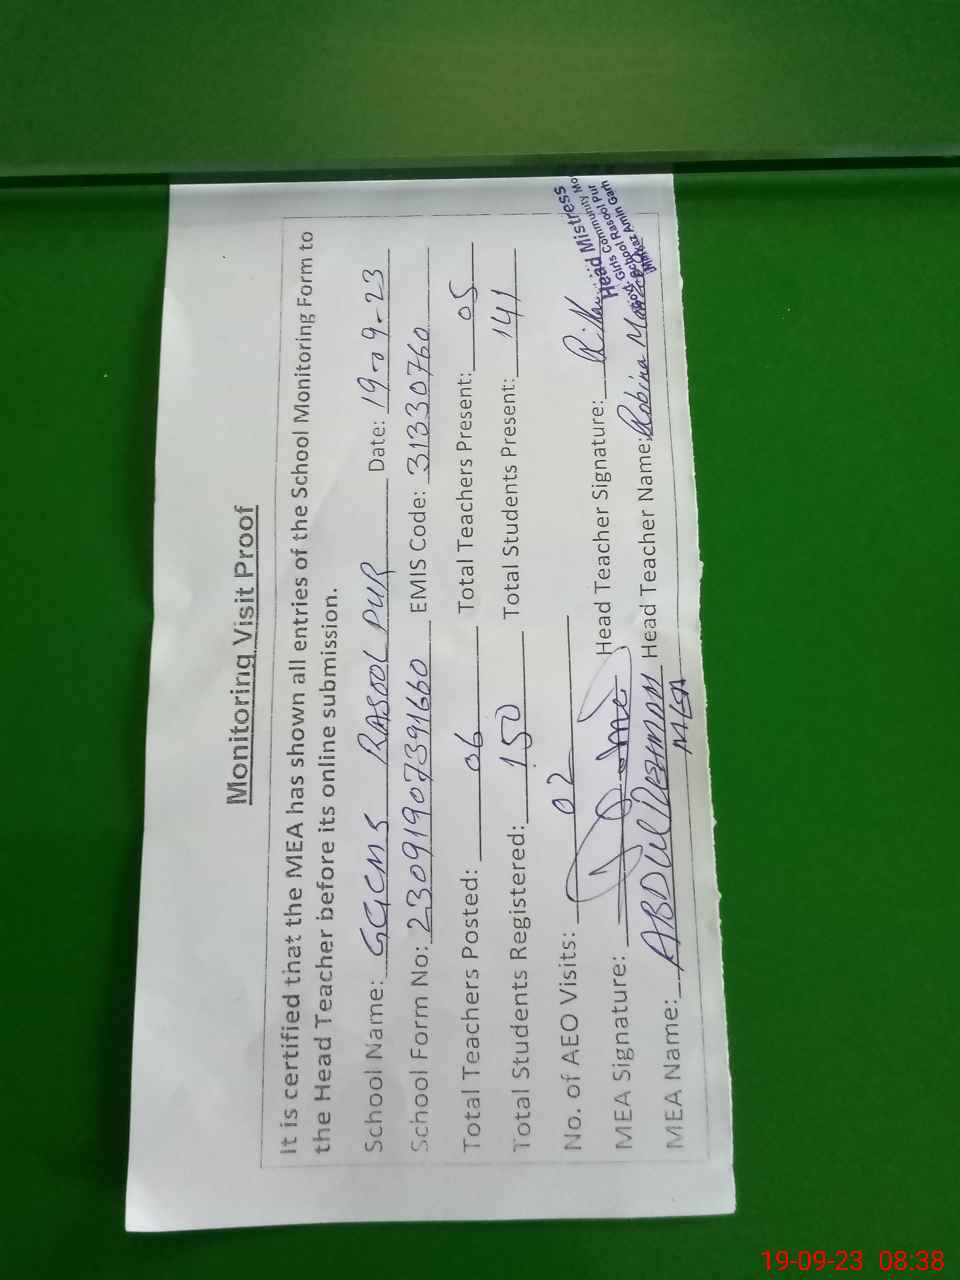 Monitoring Visit Proof
It is certified that the MEA has shown all entries of the School Monitoring Form to
the Head Teacher before its online submission.
School Name: GGCMS RASOOL PUR Date: 19-09-23
School Form No: 23091907391660 EMIS Code: 31330760
Total Teachers Posted: 06 Total Teachers Present: 05
Total Students Registered: 150 Total Students Present: 141
No. of AEO Visits: 02
MEA Signature: Head Teacher Signature:
MEA Name: ABDUL REHMAN Head Teacher Name: Robina
MEA
Head Mistress
Girls Community
School Rasool Pur
Amin Garh
19-09-23 08:38